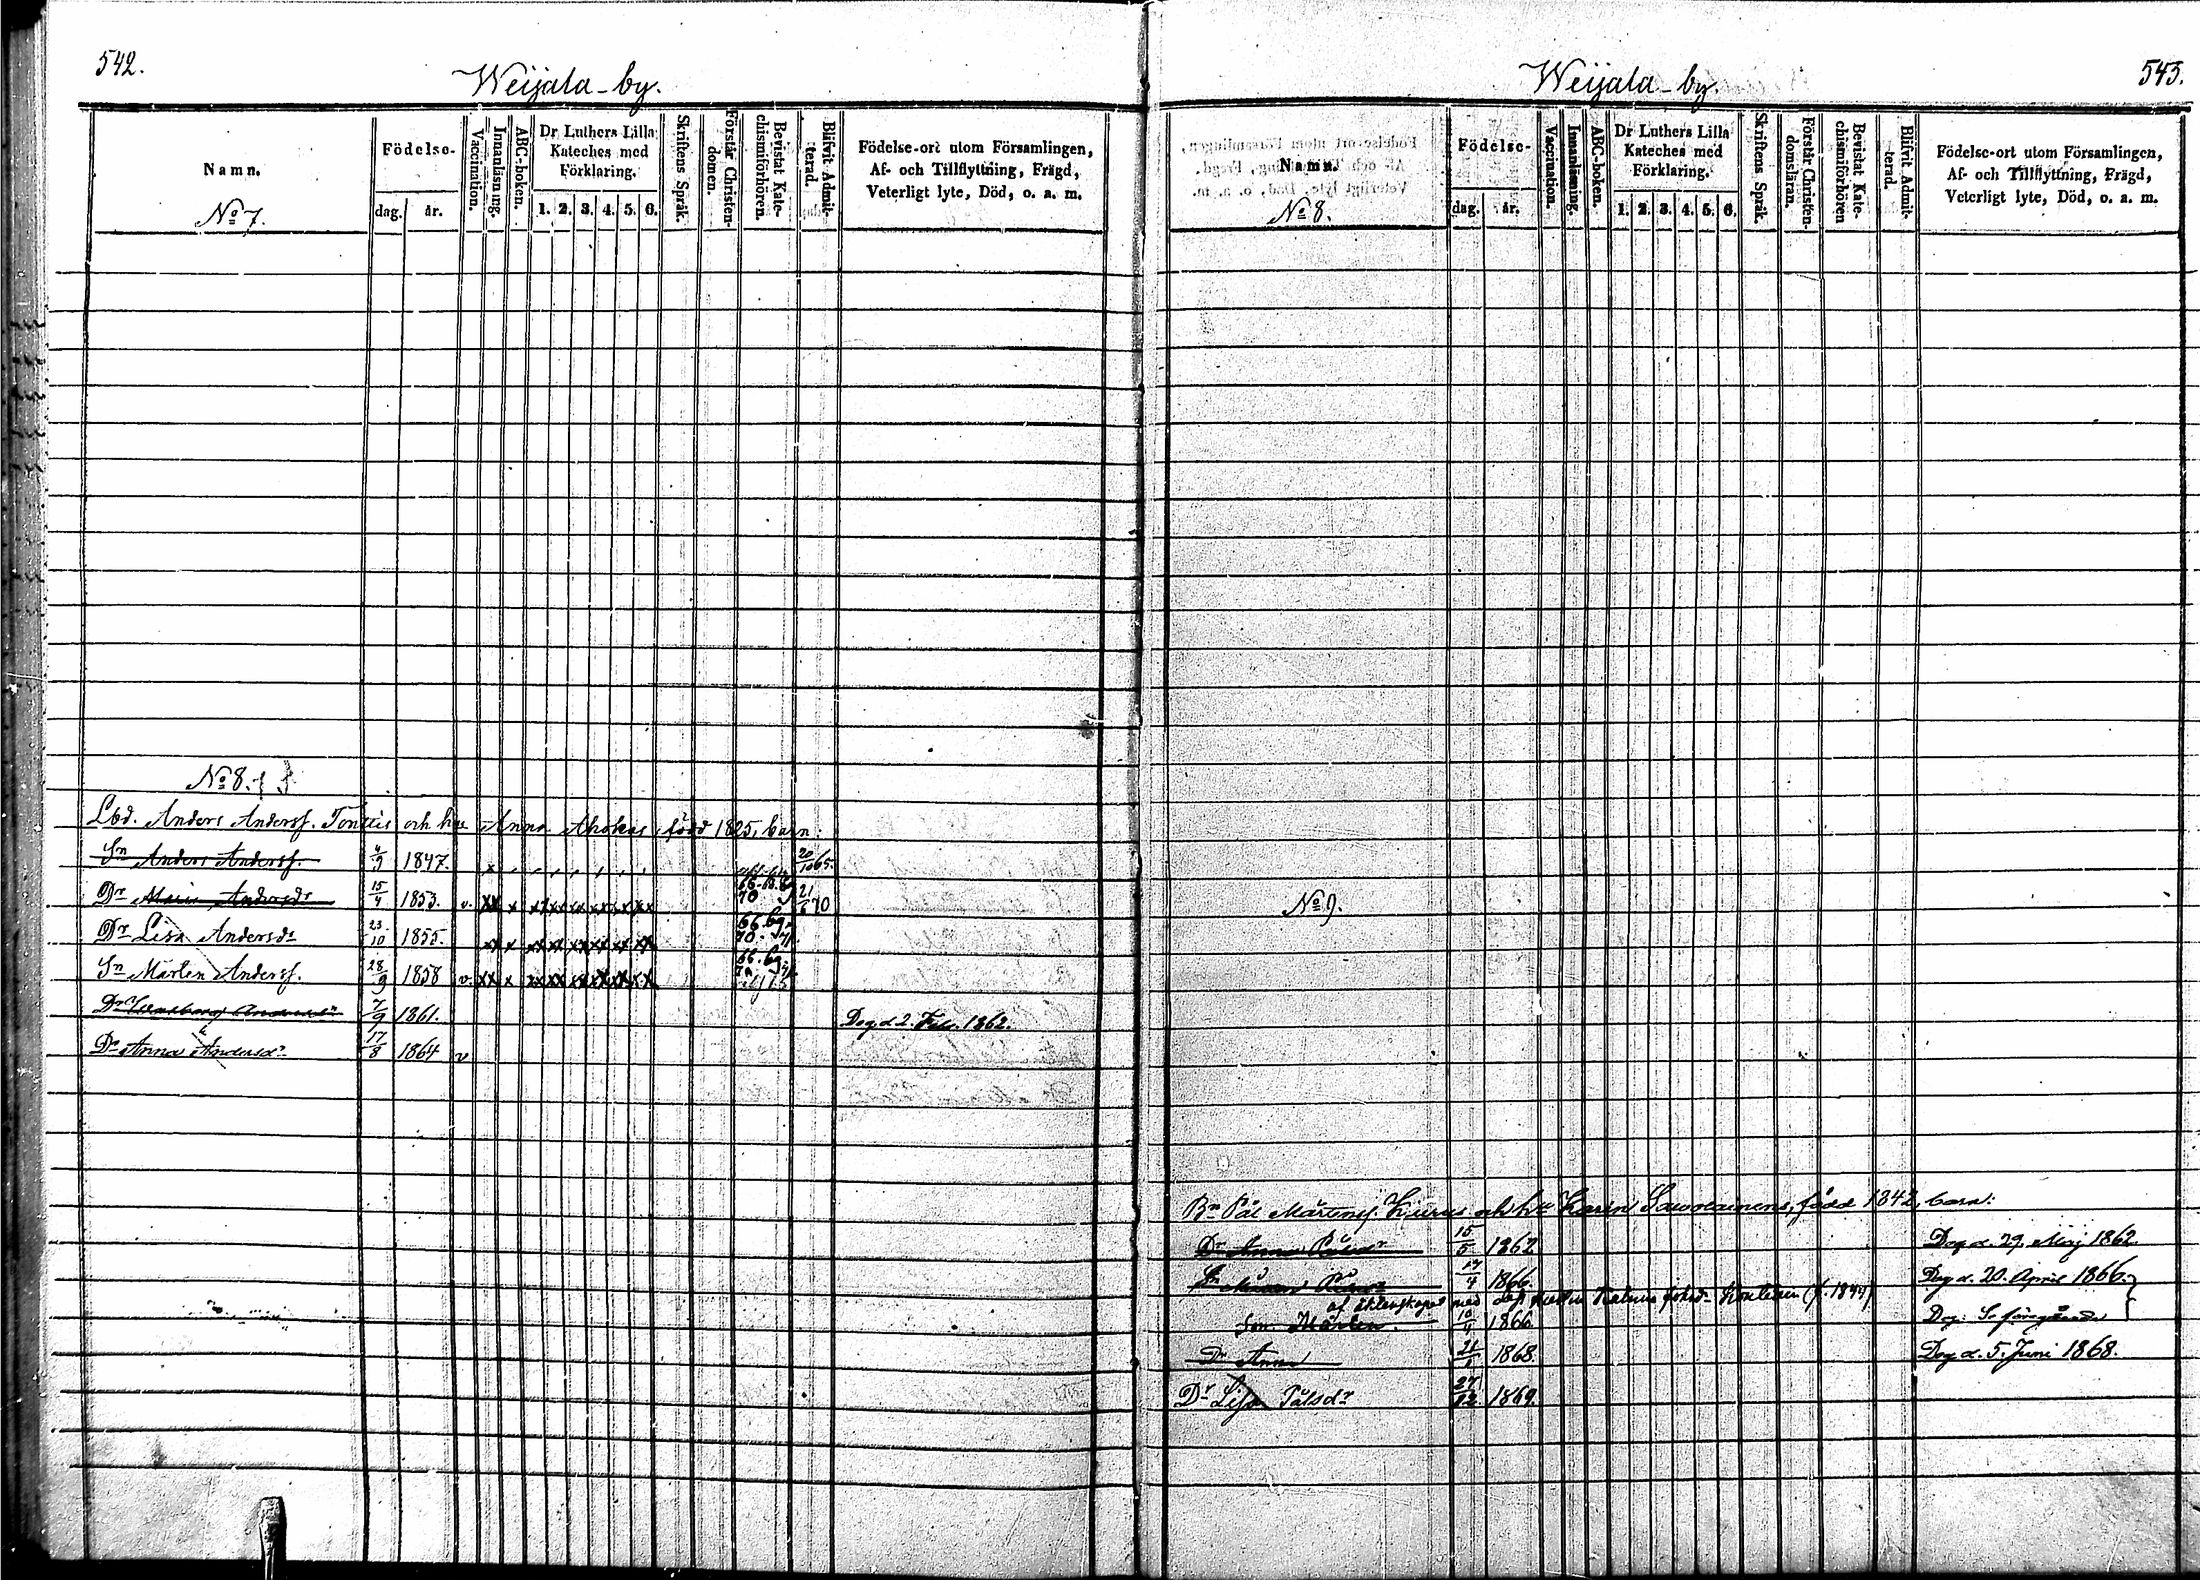 542.
Weijala-by.
Namn.
No 7.
Födelse-
dag. år.
Vaccination.
Innanläsning.
ABC-boken.
Dr Luthers Lilla
Kateches med
Förklaring.
1. 2. 3. 4. 5. 6.
Skriftens Språk.
Förstår Christen-
domen.
Bevistat Kate-
chismiförhören.
Blifvit Admit-
terad.
Födelse-ort utom Församlingen,
Af- och Tillflyttning, Frägd,
Veterligt lyte, Död, o. a. m.
No 8.
Lbd. Anders Andersf. och hu Anna Ahokas, född 1825, barn:
Sn Anders Andersf. 4/9 1847. 20/10 65.
Dr Maria Andersdr 15/4 1853. v. 70 21/6 70
Dr Lisa Andersdr 23/10 1855. 66. bg. 70.
Sn Mårten Andersf. 28/9 1858 v. 66. bg.
Dr Andersdr 7/9 1861. Dog d. 2. Feb. 1862.
Dr Anna Andersdr 17/8 1864 v
543.
Weijala-by.
Namn.
No 8.
Födelse-
dag. år.
Vaccination.
Innanläsning.
ABC-boken.
Dr Luthers Lilla
Kateches med
Förklaring.
1. 2. 3. 4. 5. 6.
Skriftens Språk.
Förstår Christen-
domsläran.
Bevistat Kate-
chismiförhören
Blifvit Admit-
terad.
Födelse-ort utom Församlingen,
Af- och Tillflyttning, Frägd,
Veterligt lyte, Död, o. a. m.
No 9.
Bn Pål Mårtensf. Kiurus och hu Karin Sawolainens, född 1842, barn:
Dr Anna Pålsdr 15/5 1862 Dog d. 29. Maj 1862
Sn 17/4 1866. Dog d. 20. April 1866.
af äktenskapet med (f. 1844)
Son Mårten. 10/4 1866 Dog: Se föregående
Dr Anna 21/1 1868. Dog d. 5. Juni 1868.
Dr Lisa Pålsdr 27/12 1869.